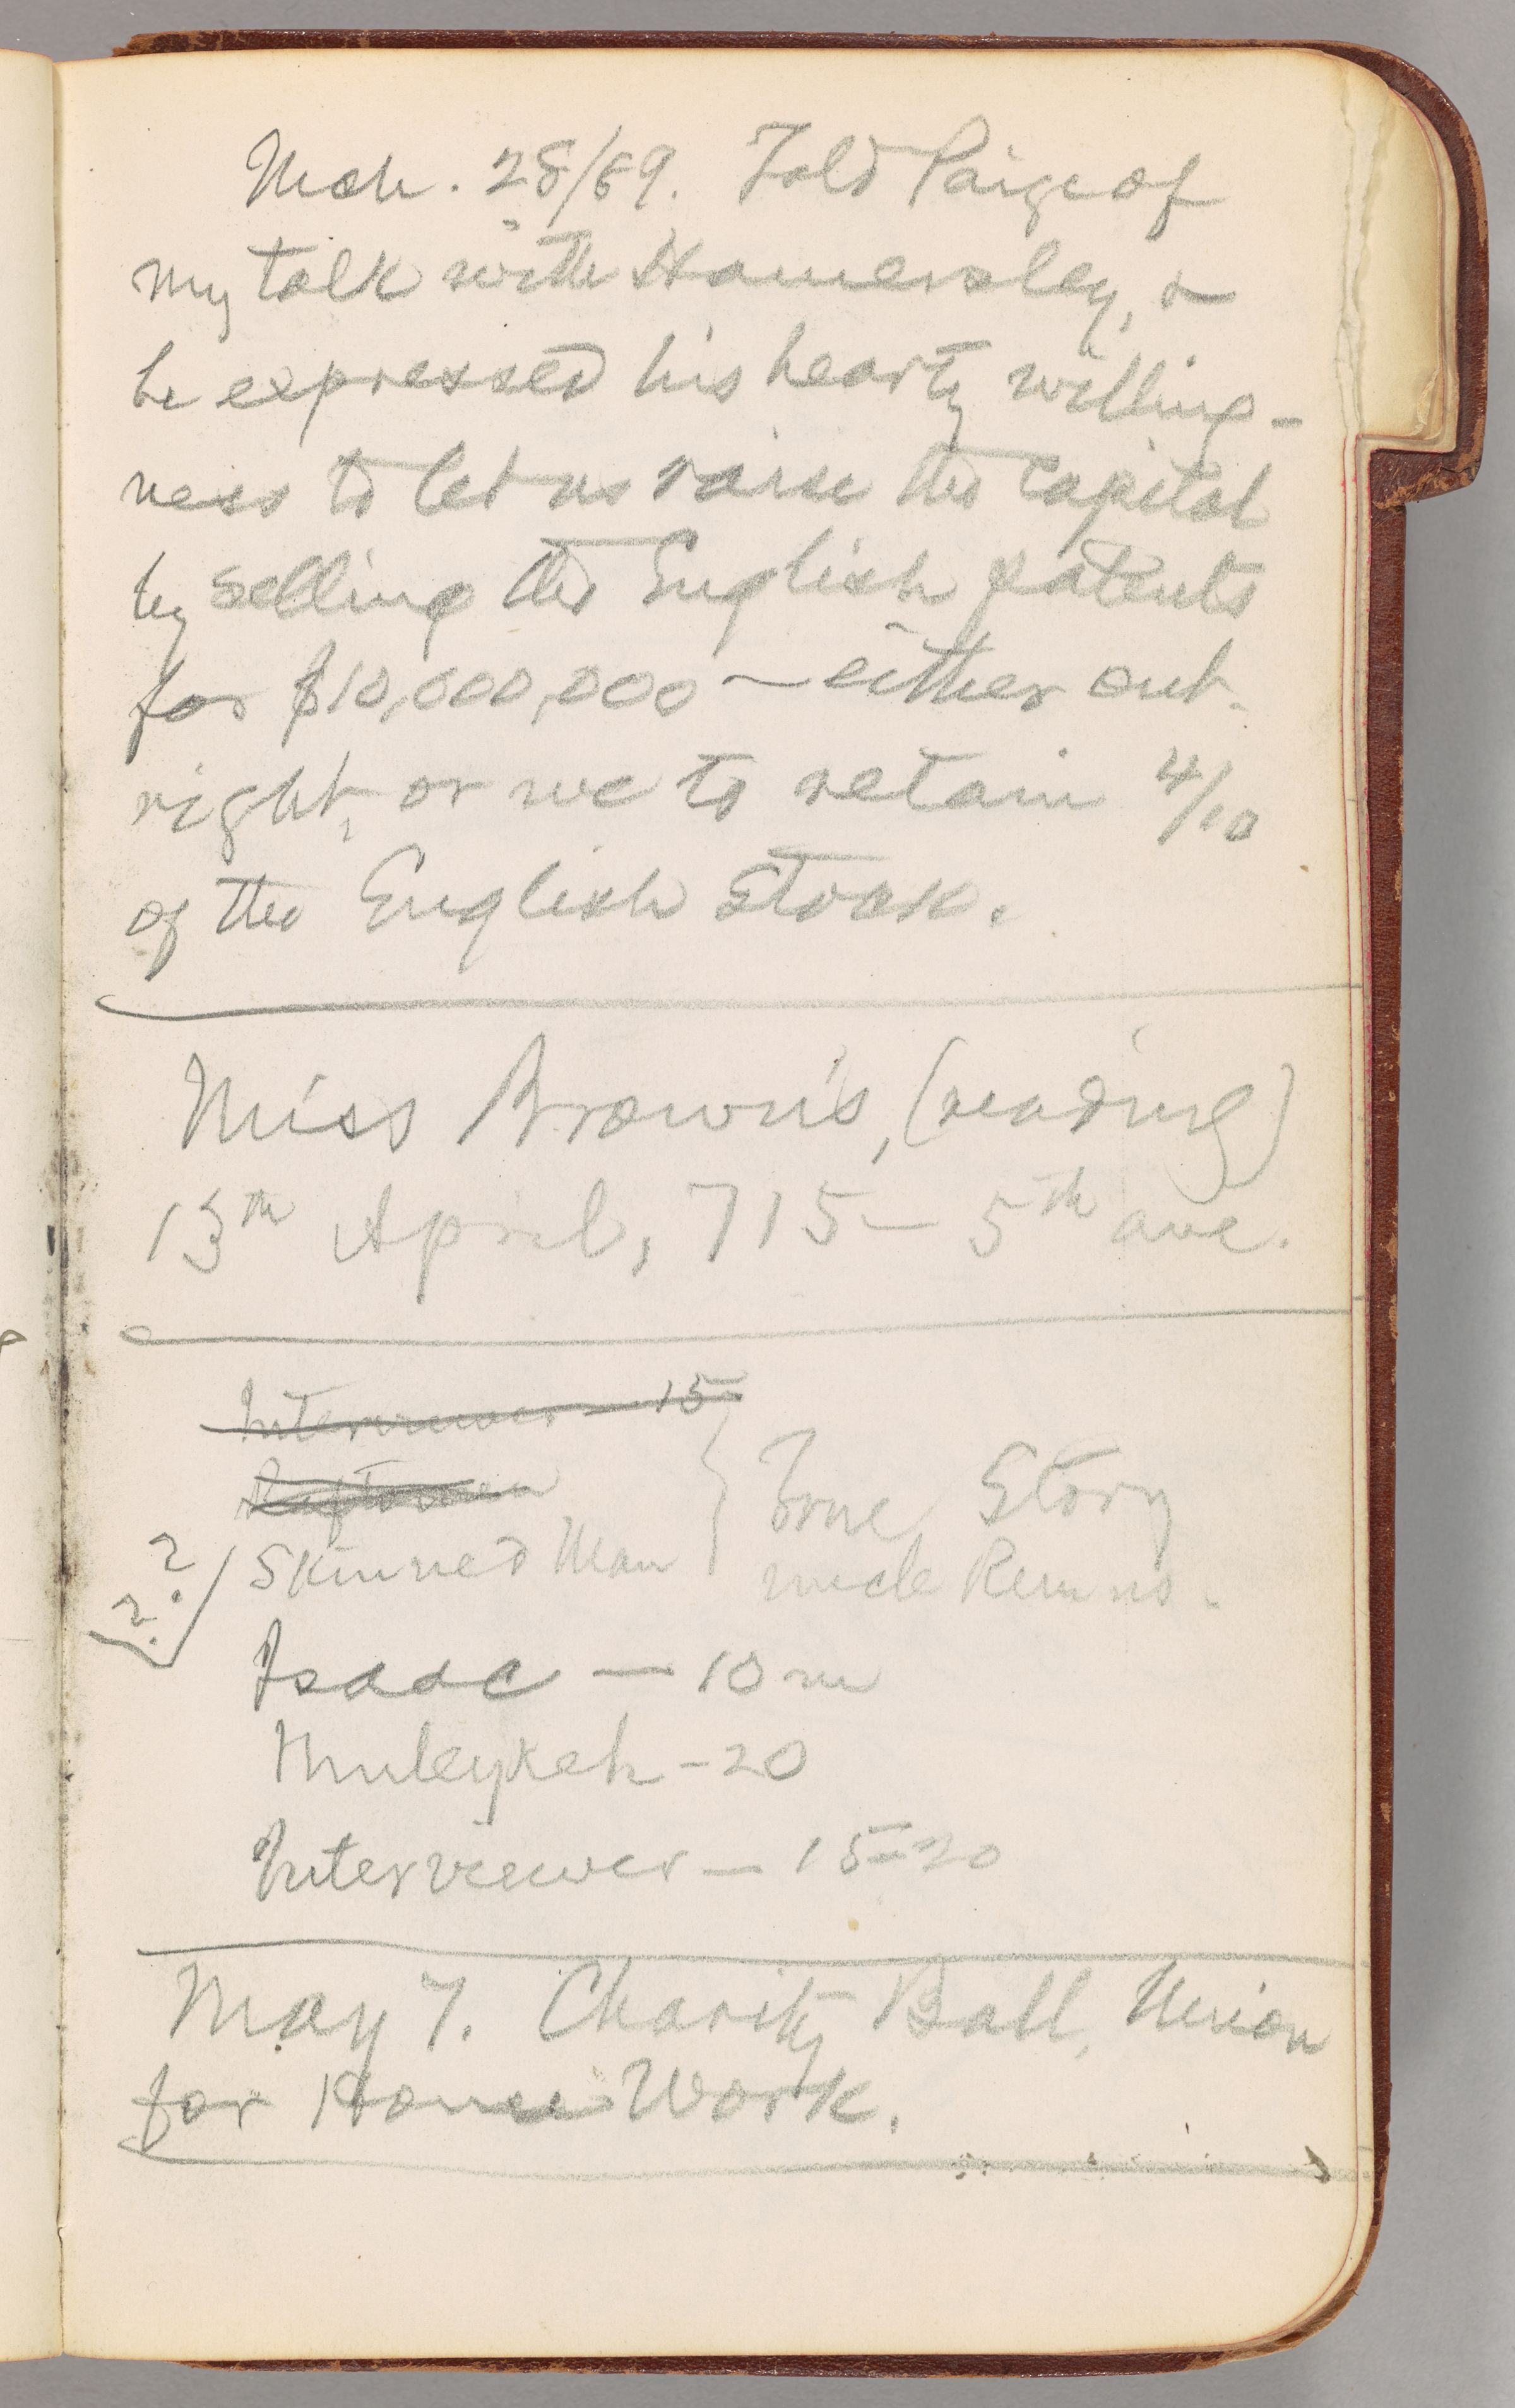 Mch. 28/89. Told Paige of
my talk with Hamersley, &
he expressed his hearty willing-
ness to let us raise the capital
by selling the English patents
for $10,000,000 — either out-
right, or we to retain 4/10
of the English stock.
Miss Brown's, (reading)
13th April, 715 — 5th ave.
Interviewer — 15
Raftsmen
True Story
? Skinned Man
uncle Remus.
?
Isaac — 10 m
Muleykeh — 20
Interviewer — 15-20
May 7. Charity Ball, Union
for Home Work.